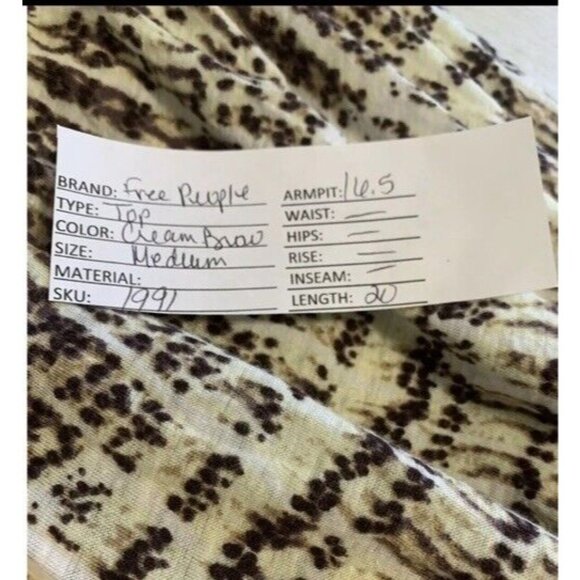 BRAND: Free People
TYPE: Top
COLOR: Cream Brow
SIZE: Medium
MATERIAL:
SKU: 1991
ARMPIT: 16.5
WAIST: —
HIPS: —
RISE: —
INSEAM: —
LENGTH: 20